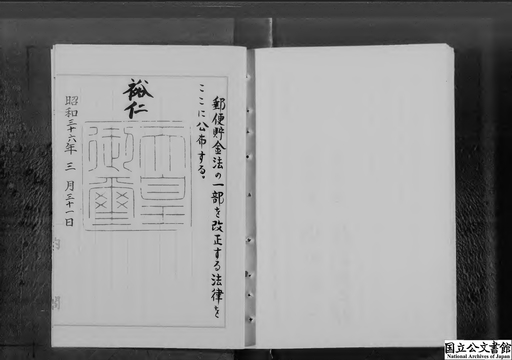 郵便貯金法の一部を改正する法律を
ここに公布する。
裕仁
天皇
御璽
昭和三十六年三月三十一日
国立公文書館
National Archives of Japan